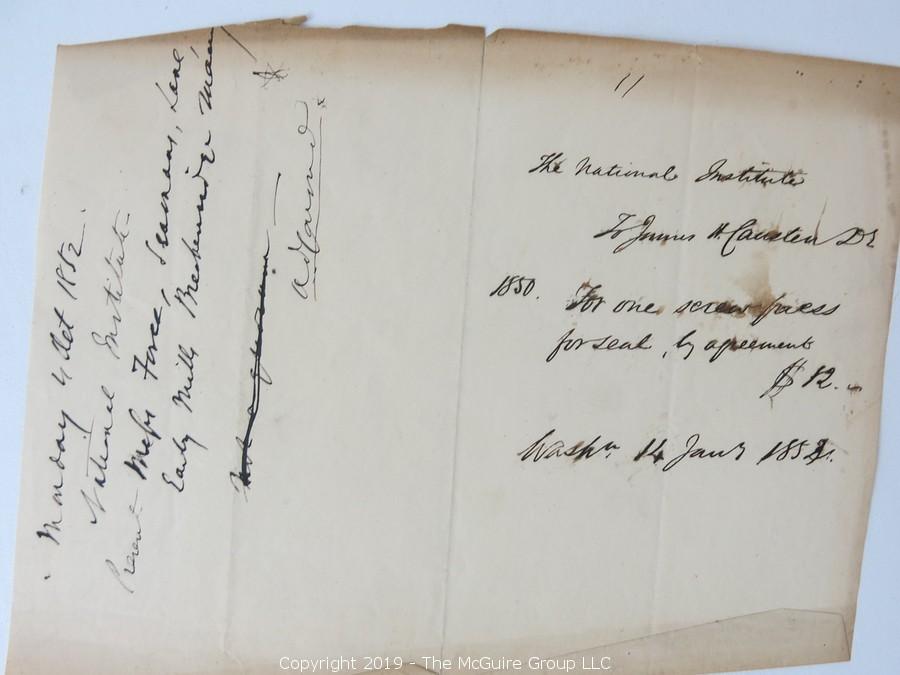 Monday 4 Oct 1852.
National Institute
Present Messrs Force, Seamans, Lane,
Early Mills Breckenridge
not a quorum
Adjourned.
11
The National Institute
To James H. Causten Dr
1850. For one screw press
for seal, by agreement
$12.
Washn 14 Jany 1851.
Copyright 2019 - The McGuire Group LLC